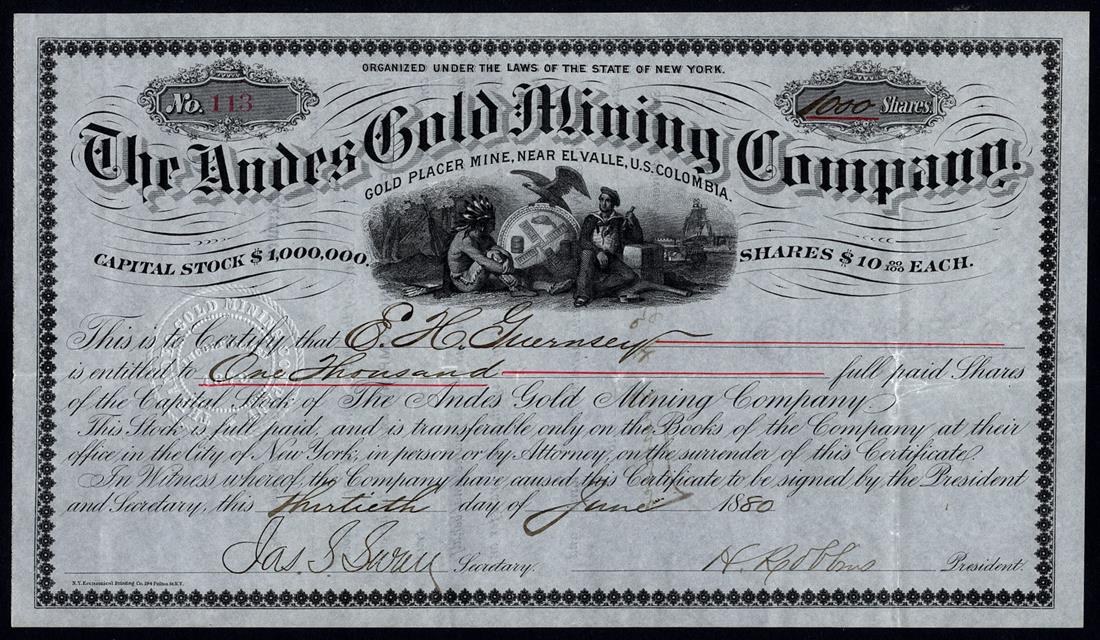 ORGANIZED UNDER THE LAWS OF THE STATE OF NEW YORK.
No. 113
1000 Shares
The Andes Gold Mining Company.
GOLD PLACER MINE, NEAR EL VALLE, U.S. COLOMBIA.
CAPITAL STOCK $1,000,000. SHARES $10 00/100 EACH.
This is to Certify that E. H. Guernsey
is entitled to One Thousand full paid Shares
of the Capital Stock of The Andes Gold Mining Company
This Stock is full paid, and is transferable only on the Books of the Company at their
office in the City of New York, in person or by Attorney, on the surrender of this Certificate.
In Witness whereof, the Company have caused this Certificate to be signed by the President
and Secretary, this thirtieth day of June 1880
Jas S Swan Secretary. H Robbins President.
N.Y. Economical Printing Co. 194 Fulton St. N.Y.